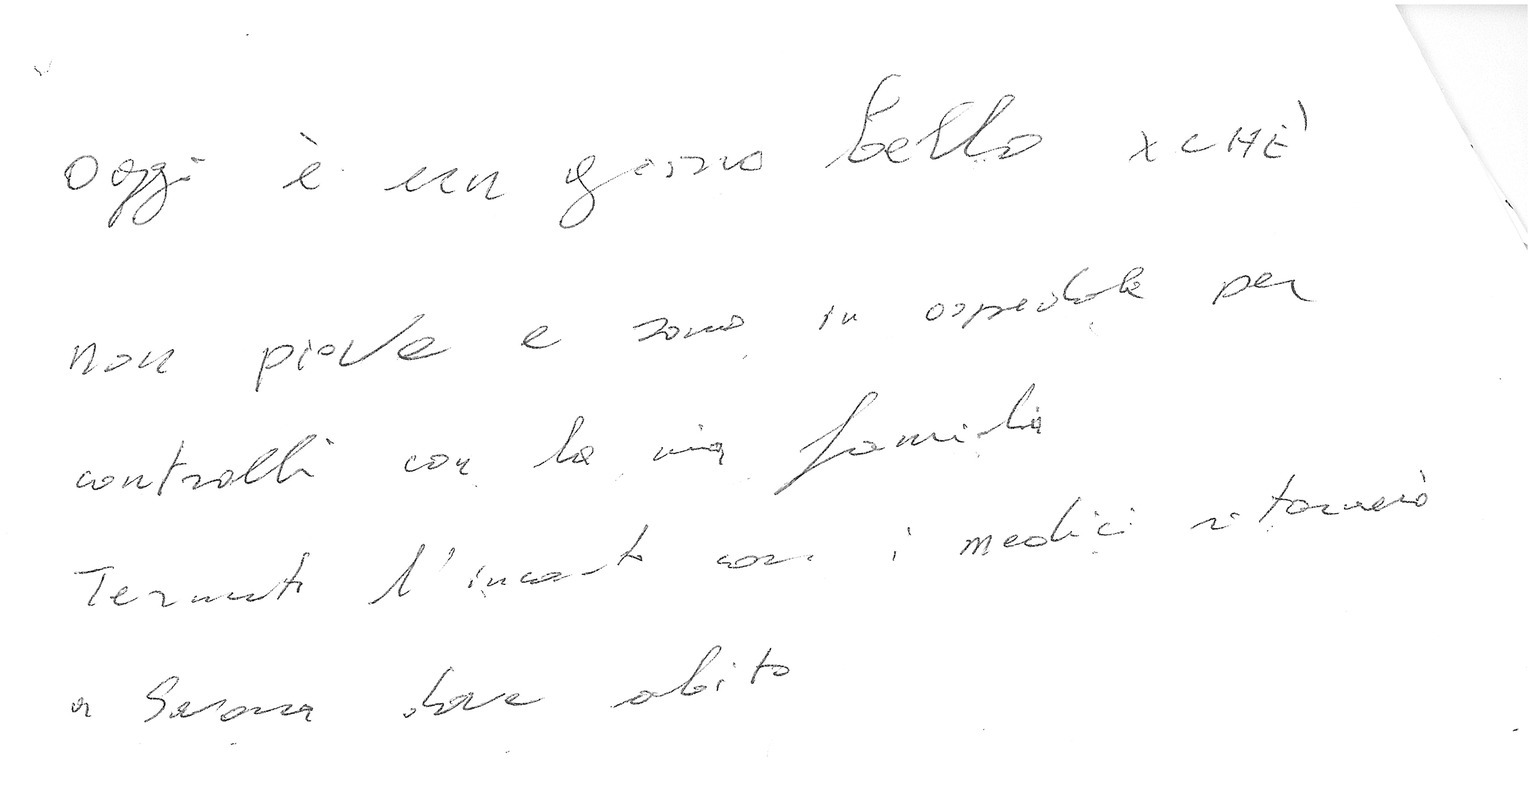 Oggi è un giorno bello XCHÈ
non piove e sono in ospedale per
controlli con la mia famiglia
Terminato l'incontro con i medici ritornerò
a dove abito